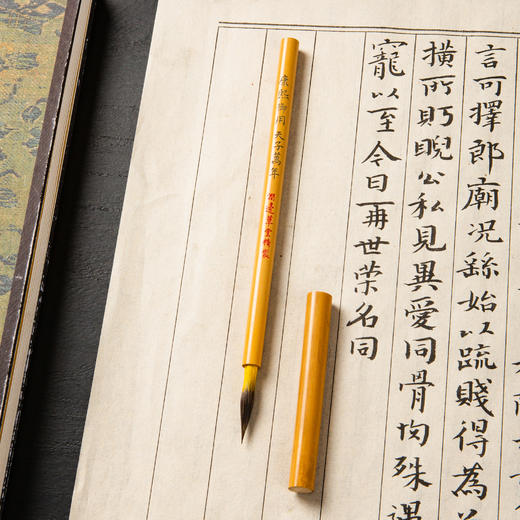 言可擇郎廟况繇始以疏賤得為
横所盱睨公私見異愛同骨肉殊遇
寵以至今日再世榮名同
康熙御用 天子萬年
草堂精製